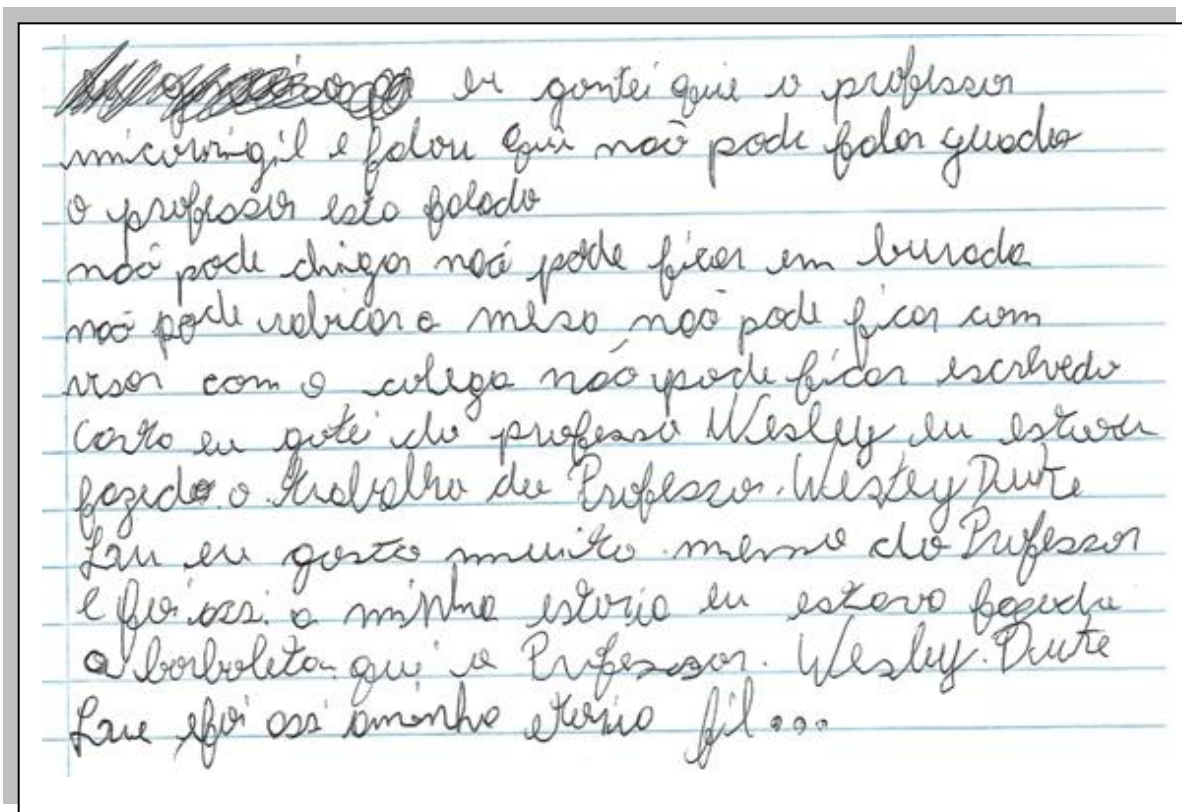 eu gontei que o professor
e falou qui não pode falar guado
o professor esta falado
não pode chigar não pode ficar em burada
não pode rabicar a mesa não pode ficar com
com o colega não pode ficar escrevedo
carta eu gotei do professo Wesley eu estava
fazedo o trabalho du Professor. Wesley
eu gosto muito mesmo do Professor
e foi assi a minha estoria eu estava fazedu
a borboleta qui o Professor. Wesley.
e foi assi aminha etoria fil...